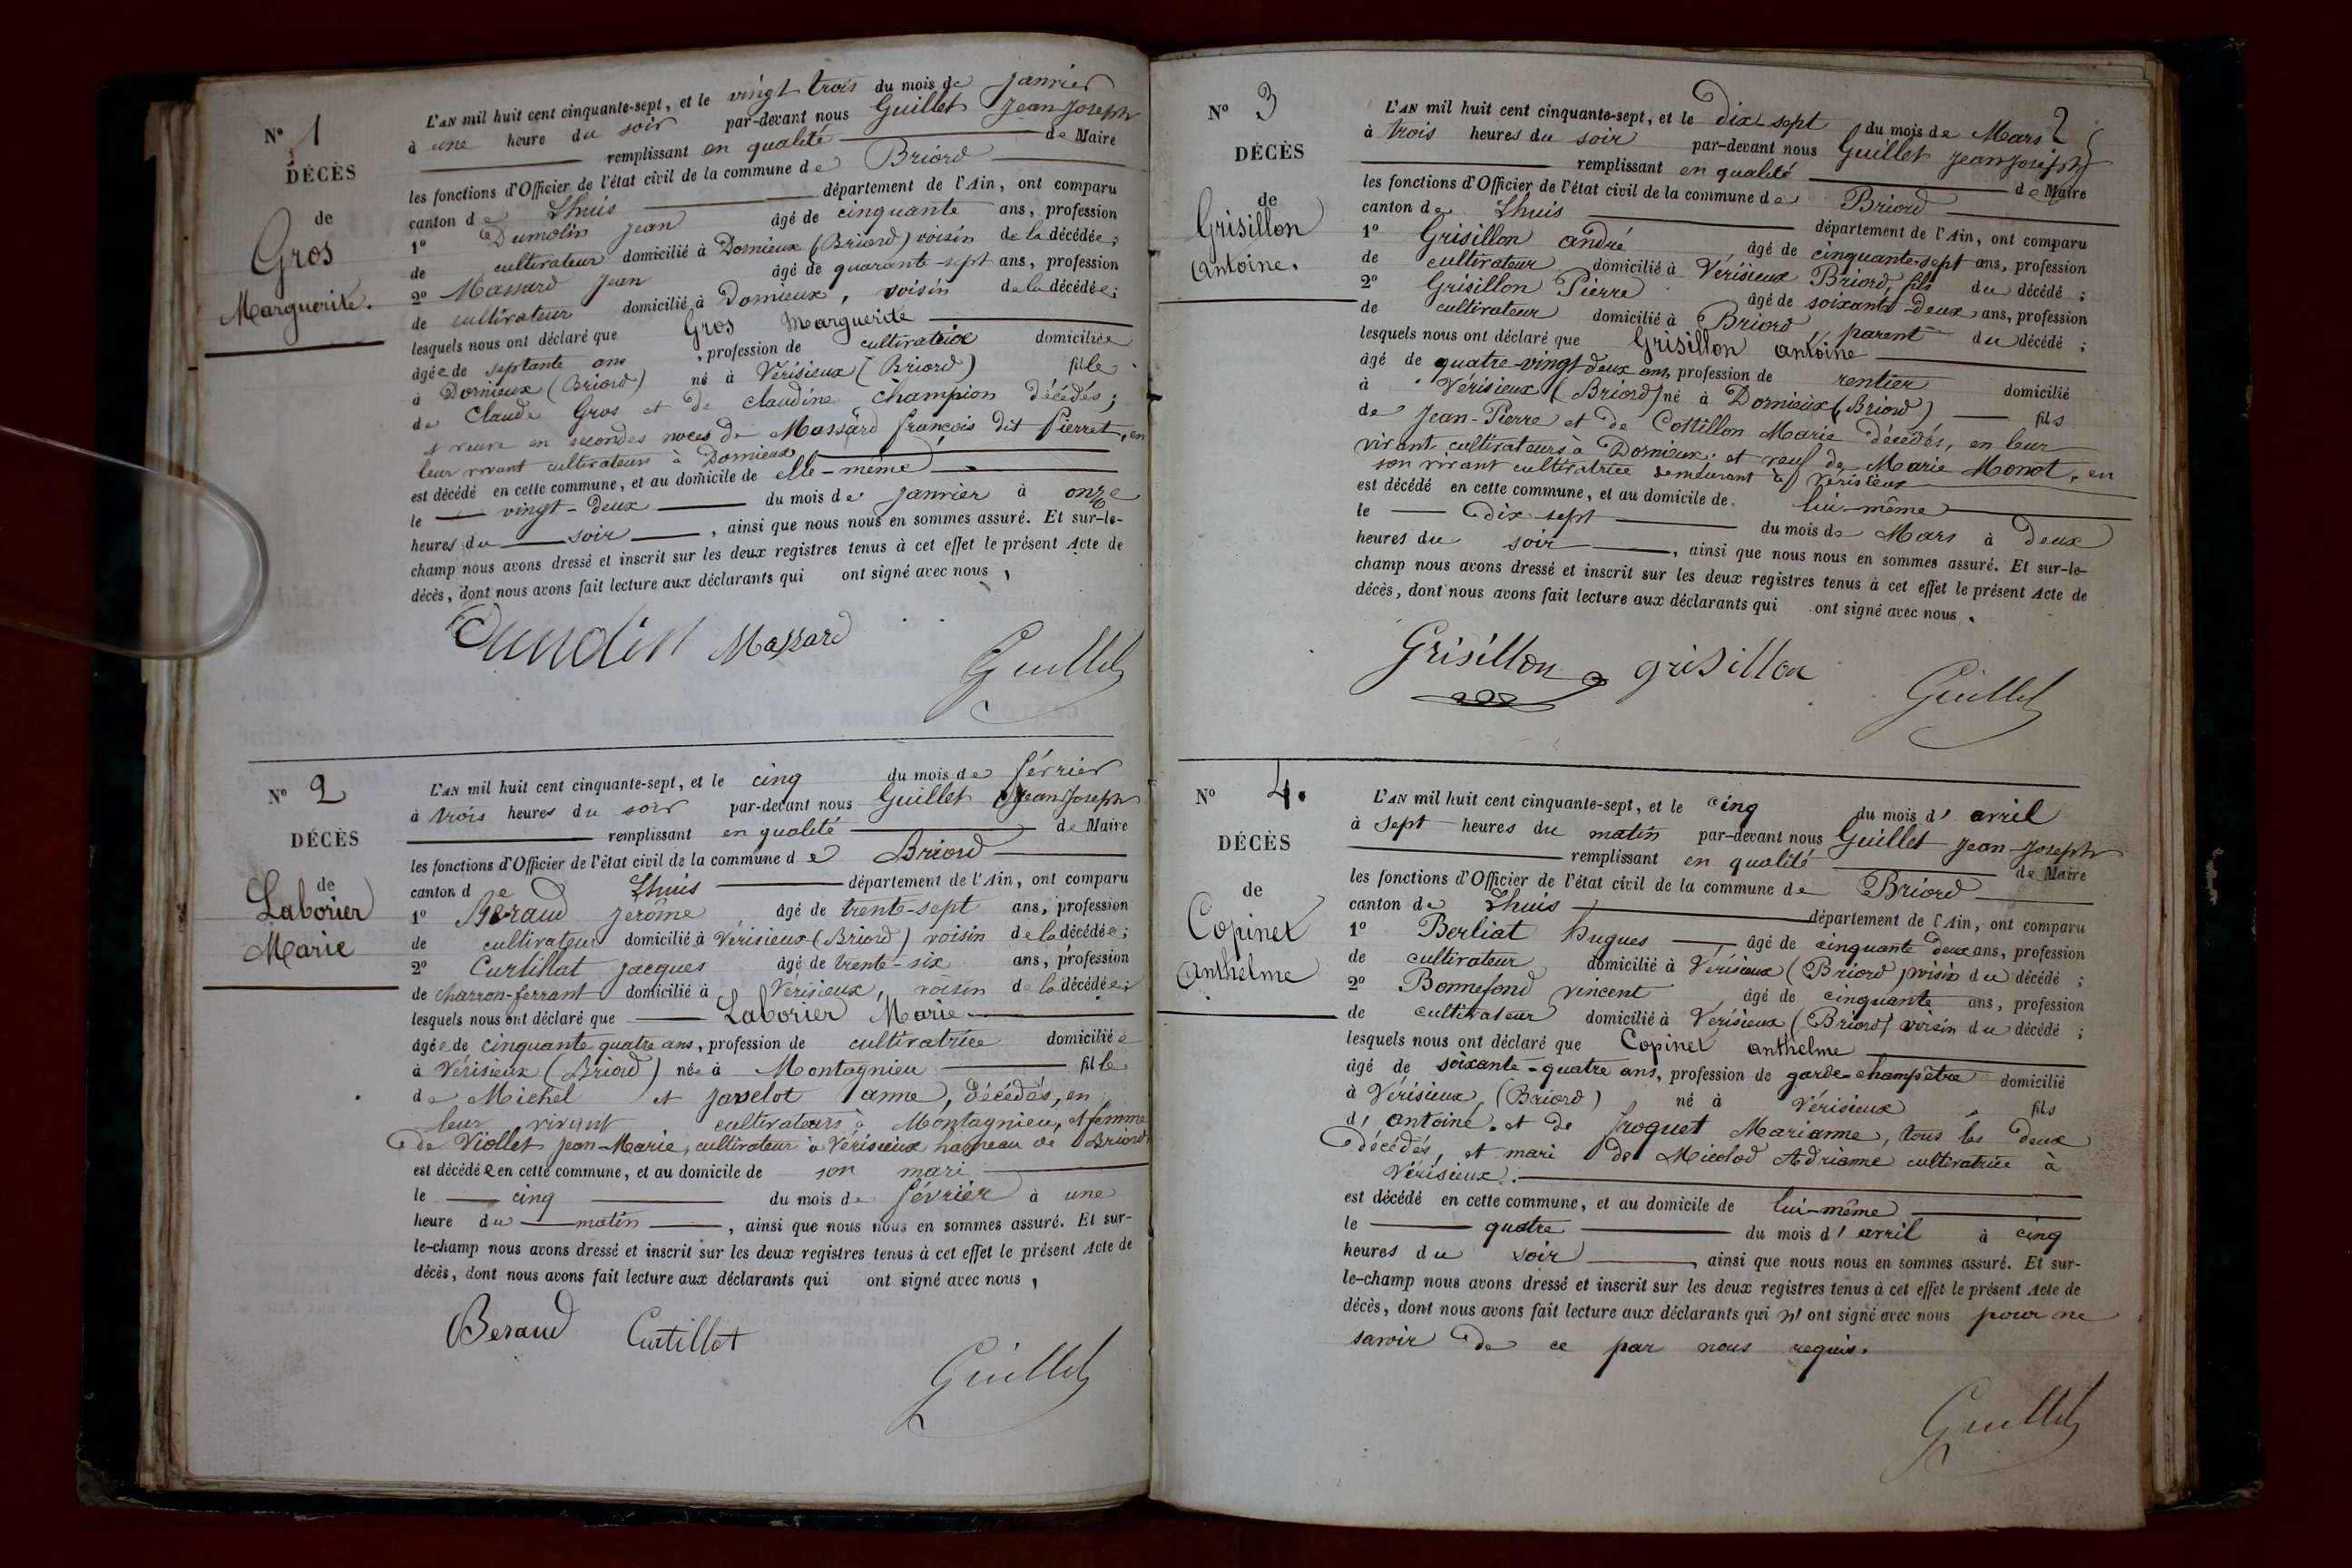 N° 1
DÉCÈS
de
Gros
Marguerite.
L'AN mil huit cent cinquante-sept, et le vingt trois du mois de janvier
à une heure du soir par-devant nous Guillet Jean Joseph
remplissant en qualité de Maire
les fonctions d'Officier de l'état civil de la commune de Briord
canton de Lhuis département de l'Ain, ont comparu
1° Dumolin Jean âgé de cinquante ans, profession
de cultivateur domicilié à Dornieux (Briord) voisin de la décédée;
2° Massard Jean âgé de quarante-sept ans, profession
de cultivateur domicilié à Dornieux, voisin de la décédée;
lesquels nous ont déclaré que Gros Marguerite
âgée de septante ans, profession de cultivatrice domiciliée
à Dornieux (Briord) né à Vérisieux (Briord) fille
de Claude Gros et de Claudine Champion décédés;
et veuve en secondes noces de Massard françois dit Pierret, en
leur vivant cultivateurs à Dornieux
est décédé en cette commune, et au domicile de elle-même
le vingt-deux du mois de janvier à onze
heures du soir, ainsi que nous nous en sommes assuré. Et sur-le-
champ nous avons dressé et inscrit sur les deux registres tenus à cet effet le présent Acte de
décès, dont nous avons fait lecture aux déclarants qui ont signé avec nous,
Massard
Guillet
N° 2
DÉCÈS
de
Laborier
Marie
L'AN mil huit cent cinquante-sept, et le cinq du mois de février
à trois heures du soir par-devant nous Guillet Jean Joseph
remplissant en qualité de Maire
les fonctions d'Officier de l'état civil de la commune de Briord
canton de Lhuis département de l'Ain, ont comparu
1° Beraud Jerôme, âgé de trente-sept ans, profession
de cultivateur domicilié à Vérisieux (Briord) voisin de la décédée;
2° Curtillat Jacques âgé de trente-six ans, profession
de charron-ferrant domicilié à Vérisieux, voisin de la décédée;
lesquels nous ont déclaré que Laborier Marie
âgée de cinquante quatre ans, profession de cultivatrice domiciliée
à Vérisieux (Briord) née à Montagnieu fille
de Michel et Javelot anne, décédés, en
leur vivant cultivateurs à Montagnieu, et femme
de Viollet Jean-Marie, cultivateur à Vérisieux hameau de Briord
est décédée en cette commune, et au domicile de son mari
le cinq du mois de février à une
heure du matin, ainsi que nous nous en sommes assuré. Et sur-
le-champ nous avons dressé et inscrit sur les deux registres tenus à cet effet le présent Acte de
décès, dont nous avons fait lecture aux déclarants qui ont signé avec nous,
Beraud Curtillet
Guillet
2
N° 3
DÉCÈS
de
Grisillon
antoine.
L'AN mil huit cent cinquante-sept, et le Dix-sept du mois de Mars
à trois heures du soir par-devant nous Guillet Jean Joseph
remplissant en qualité de Maire
les fonctions d'Officier de l'état civil de la commune de Briord
canton de Lhuis département de l'Ain, ont comparu
1° Grisillon andré âgé de cinquante-sept ans, profession
de cultivateur domicilié à Vérisieux Briord, fils du décédé;
2° Grisillon Pierre âgé de soixante-Deux ans, profession
de cultivateur domicilié à Briord, parent du décédé;
lesquels nous ont déclaré que Grisillon antoine
âgé de quatre-vingt deux ans, profession de rentier domicilié
à Vérisieux (Briord) né à Dornieux (Briord) fils
de Jean-Pierre et de Cottillon Marie décédés, en leur
vivant cultivateurs à Dornieux; et veuf de Marie Monot, en
son vivant cultivatrice demeurant à Vérisieux
est décédé en cette commune, et au domicile de lui-même
le dix sept du mois de Mars à Deux
heures du soir, ainsi que nous nous en sommes assuré. Et sur-le-
champ nous avons dressé et inscrit sur les deux registres tenus à cet effet le présent Acte de
décès, dont nous avons fait lecture aux déclarants qui ont signé avec nous.
Grisillon grisillon
Guillet
N° 4.
DÉCÈS
de
Copinet
anthelme
L'AN mil huit cent cinquante-sept, et le cinq du mois d'avril
à sept heures du matin par-devant nous Guillet Jean Joseph
remplissant en qualité de Maire
les fonctions d'Officier de l'état civil de la commune de Briord
canton de Lhuis département de l'Ain, ont comparu
1° Berliat hugues, âgé de cinquante deux ans, profession
de cultivateur domicilié à Vérisieux (Briord) voisin du décédé;
2° Bonnefond vincent âgé de cinquante ans, profession
de cultivateur domicilié à Vérisieux (Briord) voisin du décédé;
lesquels nous ont déclaré que Copinet anthelme
âgé de soixante-quatre ans, profession de garde-champêtre domicilié
à Vérisieux (Briord) né à Vérisieux, fils
d'antoine, et de froquet Marianne, tous les deux
décédés, et mari de Micolod Adrianne cultivatrice à
Vérisieux.
est décédé en cette commune, et au domicile de lui-même
le quatre du mois d'avril à cinq
heures du soir, ainsi que nous nous en sommes assuré. Et sur-
le-champ nous avons dressé et inscrit sur les deux registres tenus à cet effet le présent Acte de
décès, dont nous avons fait lecture aux déclarants qui n'ont signé avec nous pour ne
savoir de ce par nous requis.
Guillet